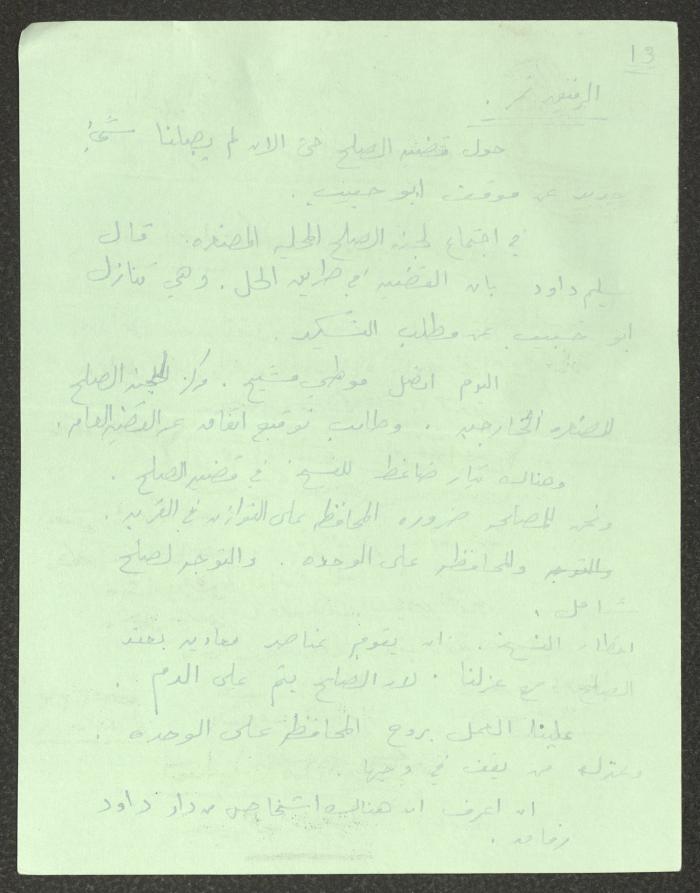 13
الرفيق نمر .
حول قضية الصلح حتى الان لم يصلنا شيئ
جديد عن موقف ابو حبيب .
في اجتماع لجنة الصلح المحليه المصغره . قال
سليم داود بان القضيه في طريق الحل . وهي تنازل
ابو حبيب عن مطلب
اليوم اتصل موطي مشيح . مركز لجنة الصلح
المصغره الخارجيه . وطالب توقيع اتفاق عن القضيه العامه .
وهناك تيار ضاغط للشيخ في قضية الصلح .
ونحن للمصلحه ضروره المحافظه على التوازن في القريه .
والتوجه والمحافظه على الوحده . والتوجه لصلح
شامل .
الشيخ . ان يقوم عناصر معاديه بعقد
الصلح مع عزلنا . لان الصلح يتم على الدم .
علينا العمل بروح المحافظه على الوحده .
وعزل من يقف في وجهها .
ان اعرف ان هناك اشخاص من دار داود